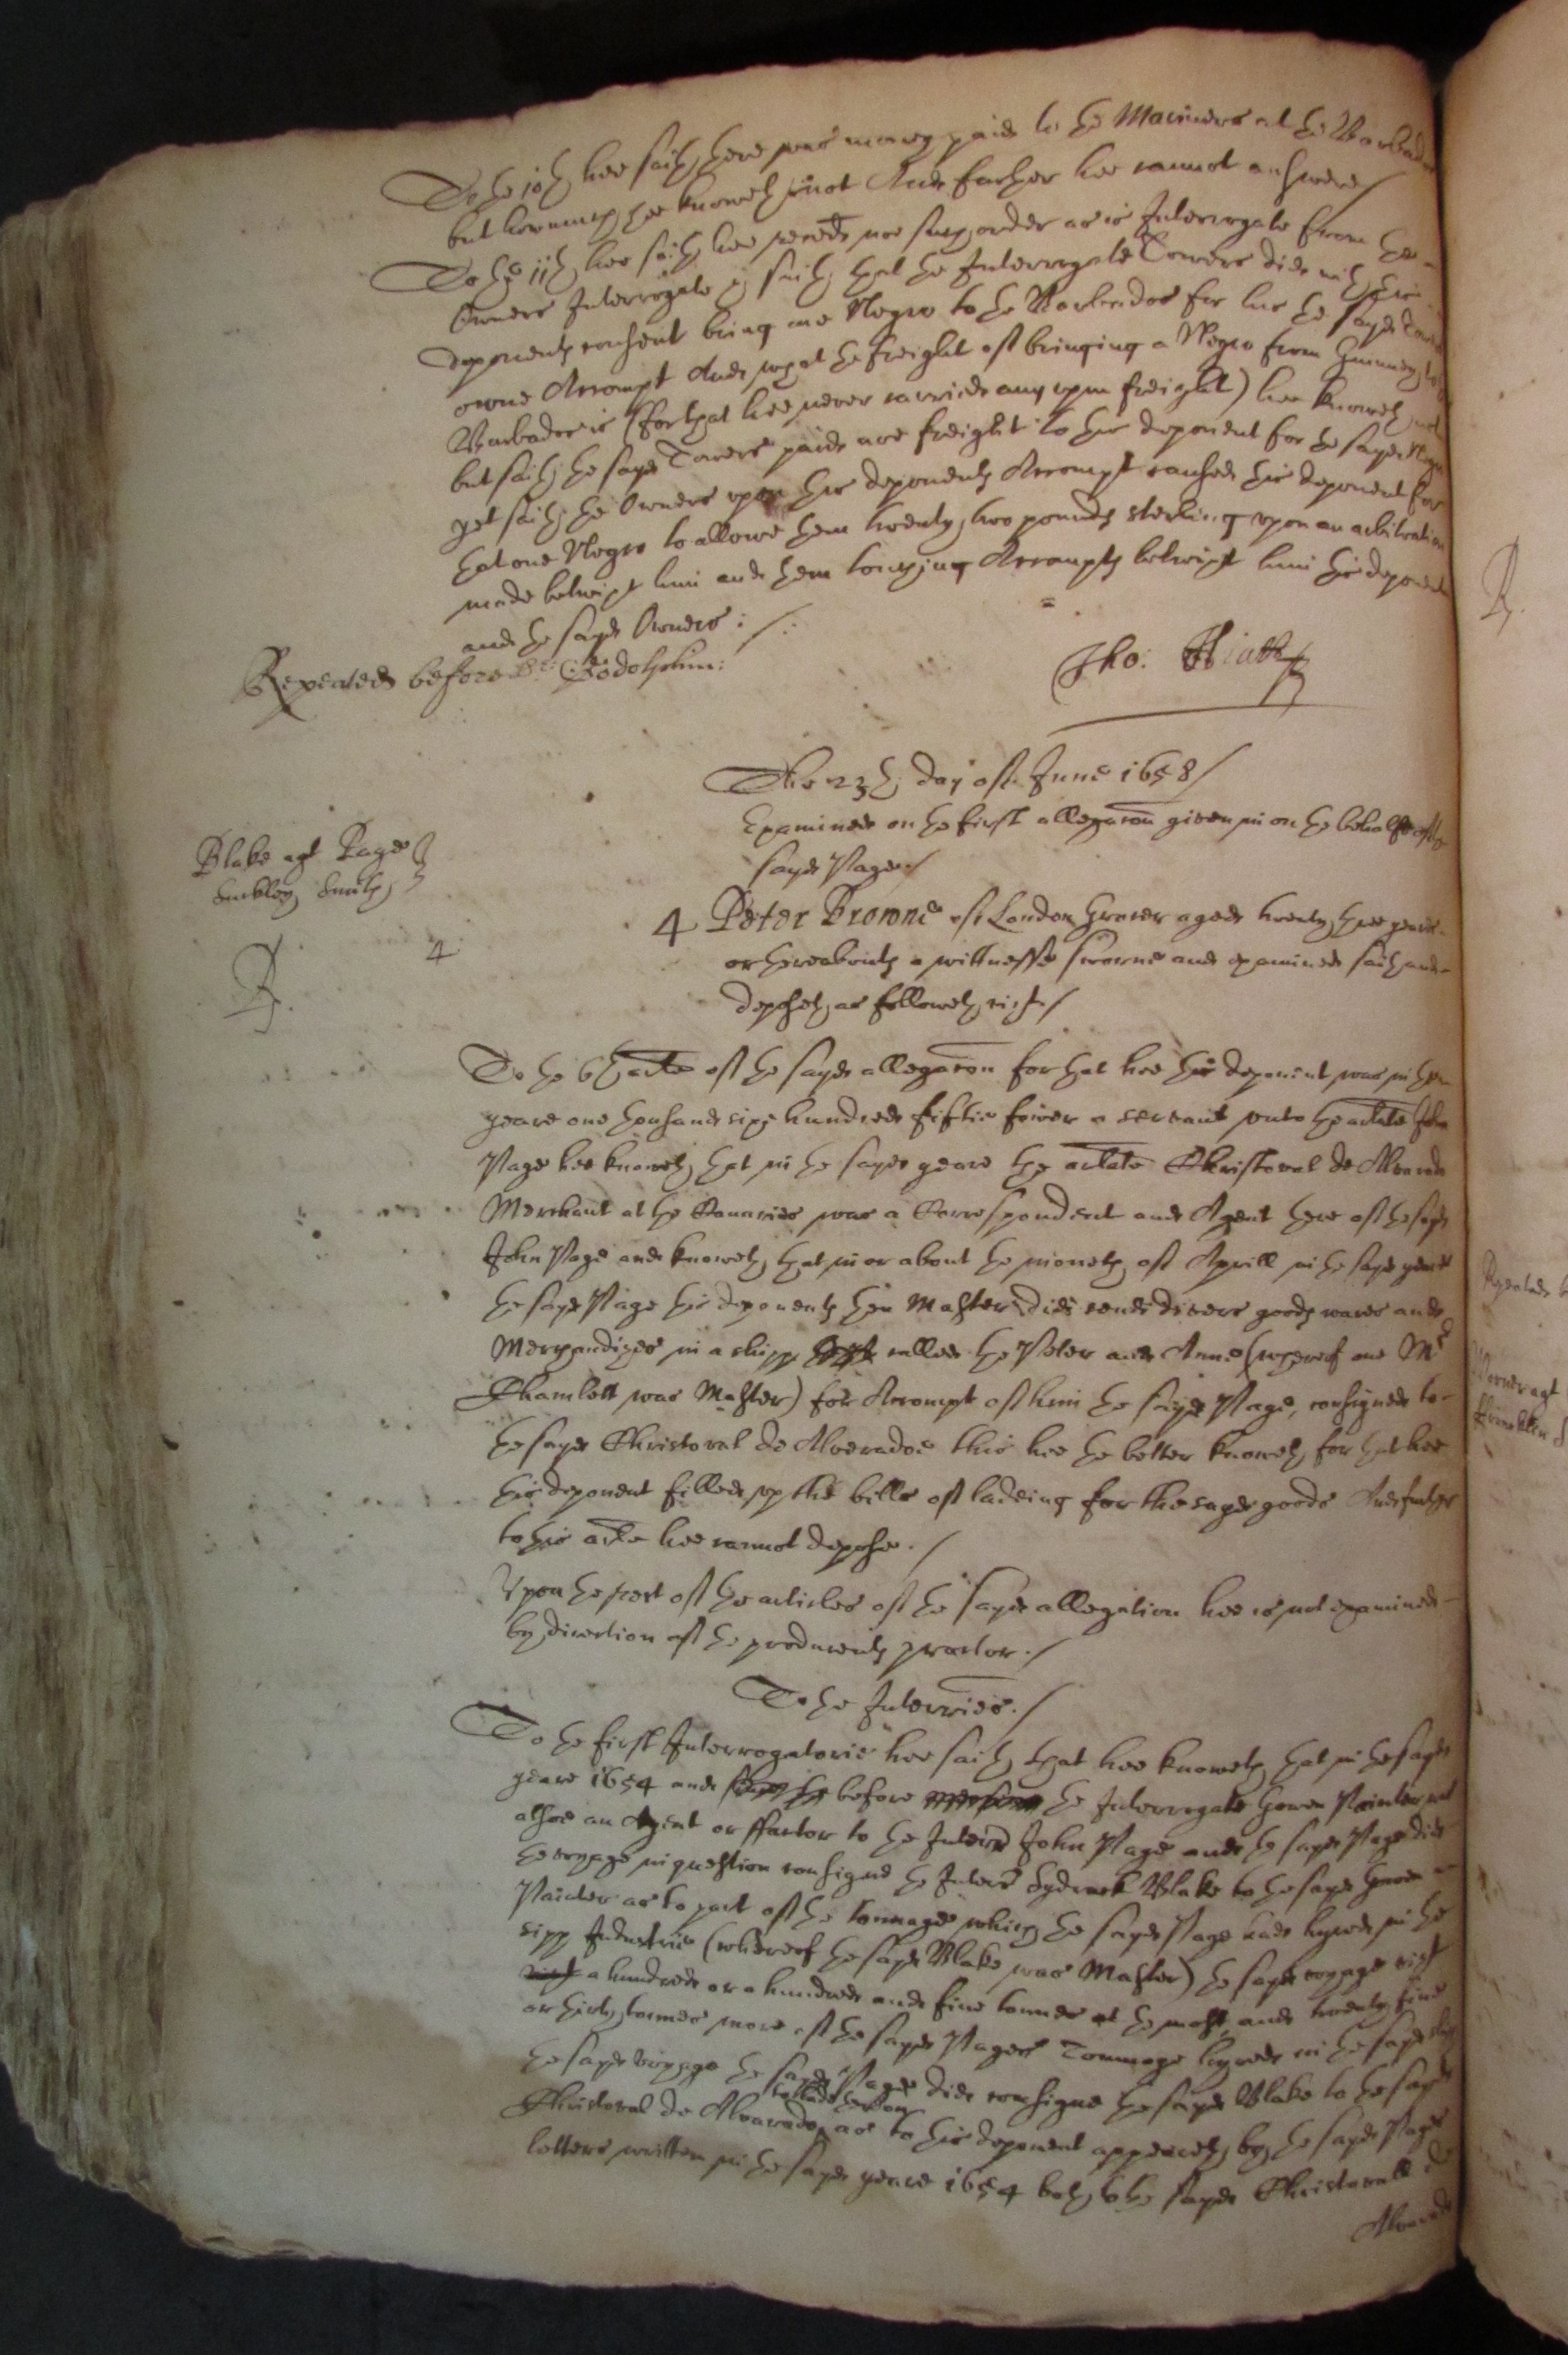 To the 10th hee saith there was money paid to the Mariners at the Barbados
but how much hee knoweth not And farther hee cannot answere /
To the 11th hee saith hee received noe such order as is Interrogate from the
Owners Interrogate saith that the Interrogate Towers did with this
deponents consent bring one Negro to the Barbados for his the sayd Towers
owne Accompt And what the freight of bringing a Negro from Guinney to
Barbados is (for that hee never carried any upon freight) hee knoweth not
but saith the sayd Towers paid noe freight to this deponent for the sayd Negro
yet saith the Owners upon this deponents Accompt caused this deponent for
that one Negro to allowe them twenty two pounds sterling upon an arbitration
made betwixt him and them touching Accompts betwixt him this deponent
and the sayd Owners : /:
Repeated before Dr: Godolphin:
Tho: Hiatt
The 23th day of June 1658 /
Examined on the first allegacon given in on the behalfe of the
sayd Page. /
Blake agt Page
Suckley Smith
4
4 Peter Browne of London Grocer aged twenty three yeares
or thereabouts a wittnesse sworne and examined saith and
deposeth as followeth vizt. /
To the 6th arlte of the sayd allegacon for that hee this deponent was in the
yeare one thousand sixe hundred fiftie fower a servant unto the arlate John
Page hee knoweth that in the sayd yeare the arlate Christoval de Alvarado
Merchant at the Canaries was a Correspondent and Agent there of the sayd
John Page and knoweth that in or about the moneth of Aprill in the sayd yeare
the sayd Page this deponents then Master did send divers goods wares and
Merchandizes in a shipp called the Peter and Anne (whereof one Mr
Chamlett was Master) for Accompt of him the sayd Page, consigned to
the sayd Christoval de Alveradoe this hee the better knoweth for that hee
this deponent filled up the bills of lading for the sayd goods And further
to this arlte hee cannot depose. /
Upon the rest of the articles of the sayd allegation hee is not examined
by direction of the producents proctor. /
To the Interries. /
To the first Interrogatorie hee saith that hee knoweth that in the sayd
yeare 1654 and before the Interrogate Gowen Painter was
alsoe an Agent or ffactor to the Interrd John Page and the sayd Page did
the voyage in question consigne the Interrd Sydrack Blake to the sayd Gowen
Painter as to part of the tonnage which the sayd Page had hyred in the
shipp Industrie (whereof the sayd Blake was Master) the sayd voyage vizt
a hundred or a hundred and five tonnes at the most, and twenty five
or thirty tonnes more of the sayd Pages Tonnage hyred in the sayd shipp
the sayd voyage the sayd Page did consigne the sayd Blake to the sayd
Christoval de Alvarado as to this deponent appeareth by the sayd Pages
letters written in the sayd yeare 1654 both to the sayd Christovall de
Alvarado